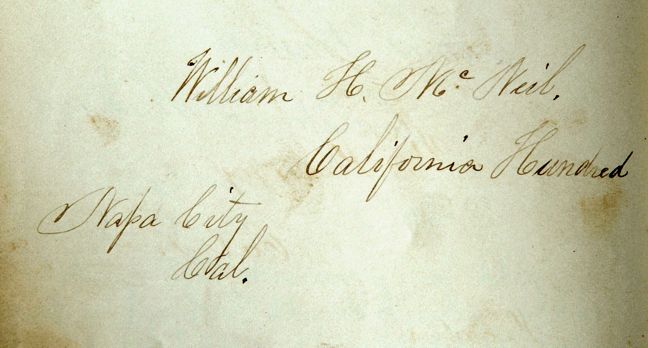 William H. Mc Neil.
California Hundred
Napa City
Cal.